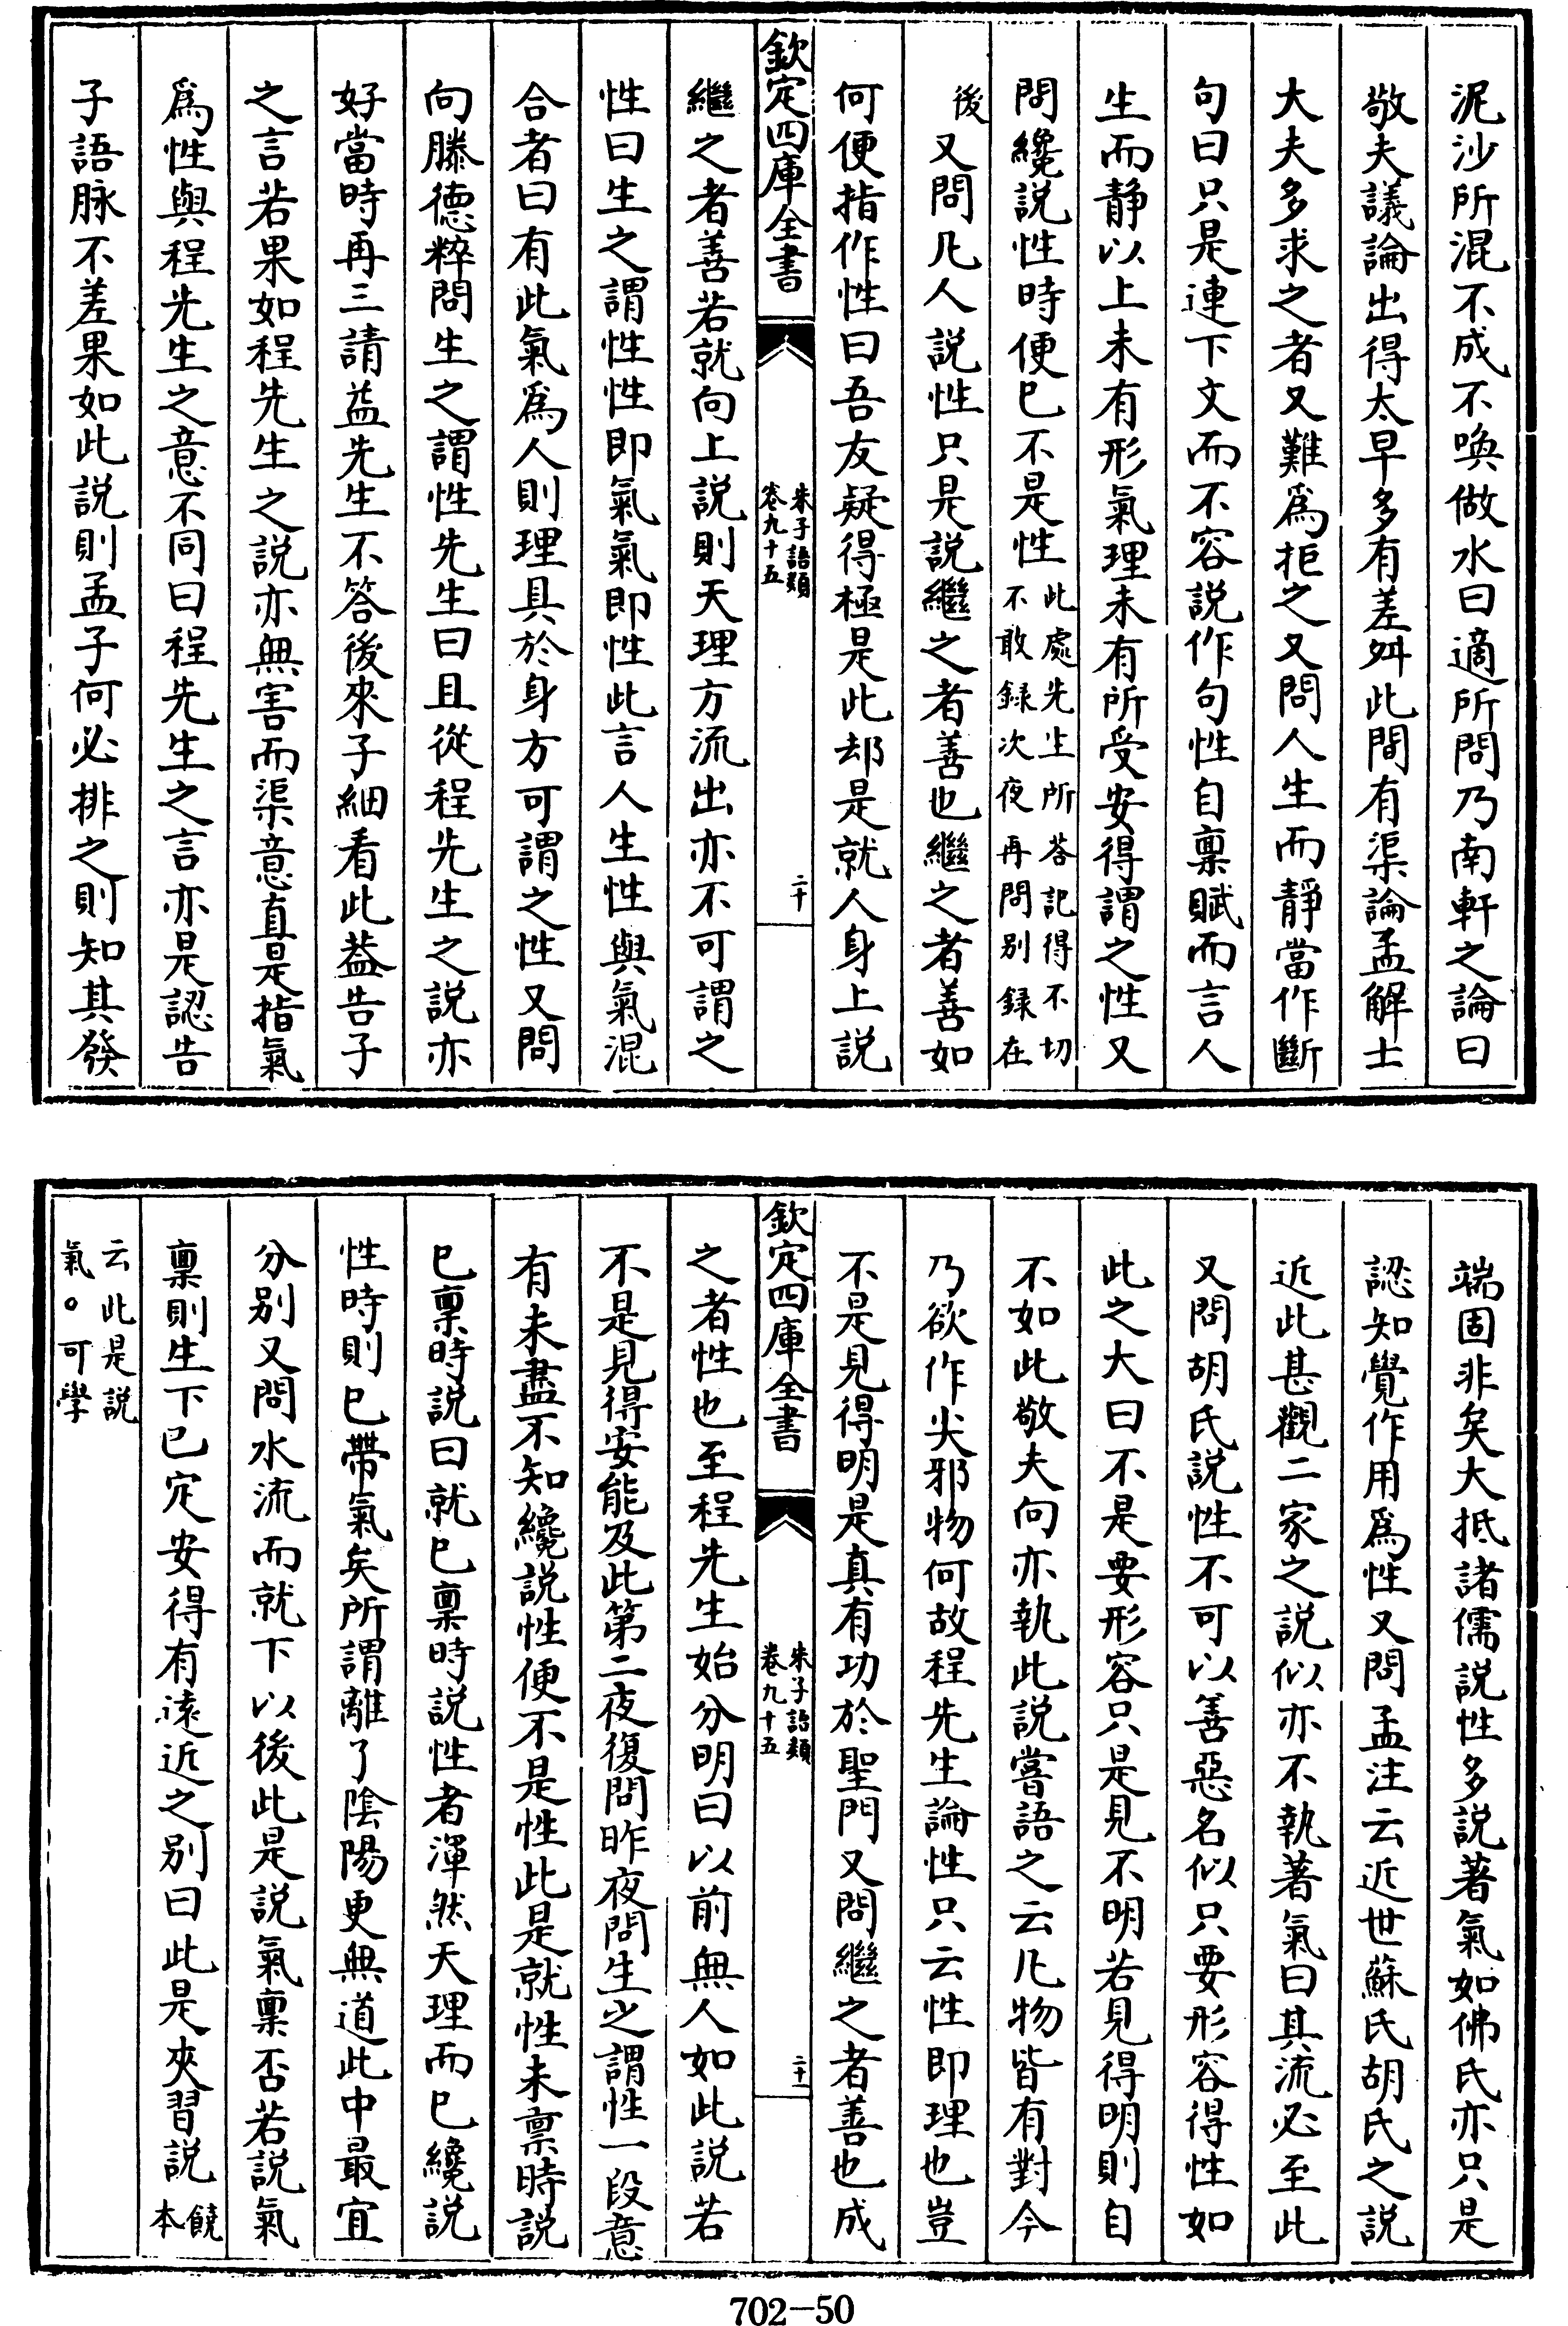 泥沙所混不成不喚做水曰適所問乃南軒之論曰
敬夫議論出得太早多有差舛此間有渠論孟解士
大夫多求之者又難爲拒之又問人生而靜當作斷
句曰只是連下文而不容説作句性自稟賦而言人
生而靜以上未有形氣理未有所受安得謂之性又
問纔説性時便已不是性此處先生所答記得不切
不敢録次夜再問别録在
後又問凡人説性只是説繼之者善也繼之者善如
何便指作性曰吾友疑得極是此却是就人身上説
欽定四庫全書
朱子語類
卷九十五
二十
繼之者善若就向上説則天理方流出亦不可謂之
性曰生之謂性性即氣氣即性此言人生性與氣混
合者曰有此氣爲人則理具於身方可謂之性又問
向滕德粹問生之謂性先生曰且從程先生之説亦
好當時再三請益先生不答後來子細看此蓋告子
之言若果如程先生之説亦無害而渠意直是指氣
爲性與程先生之意不同曰程先生之言亦是認告
子語脉不差果如此説則孟子何必排之則知其發
端固非矣大抵諸儒説性多説著氣如佛氏亦只是
認知覺作用爲性又問孟注云近世蘇氏胡氏之説
近此甚觀二家之説似亦不執著氣曰其流必至此
又問胡氏説性不可以善惡名似只要形容得性如
此之大曰不是要形容只是見不明若見得明則自
不如此敬夫向亦執此説嘗語之云凡物皆有對今
乃欲作尖邪物何故程先生論性只云性即理也豈
不是見得明是真有功於聖門又問繼之者善也成
欽定四庫全書
朱子語類
卷九十五
二十一
之者性也至程先生始分明曰以前無人如此説若
不是見得安能及此第二夜復問昨夜問生之謂性一段意
有未盡不知纔説性便不是性此是就性未稟時説
已稟時説曰就已稟時説性者渾然天理而已纔説
性時則已帶氣矣所謂離了陰陽更無道此中最宜
分别又問水流而就下以後此是説氣稟否若説氣
稟則生下已定安得有遠近之别曰此是夾習説饒
本
云此是説
氣○可學
702—50